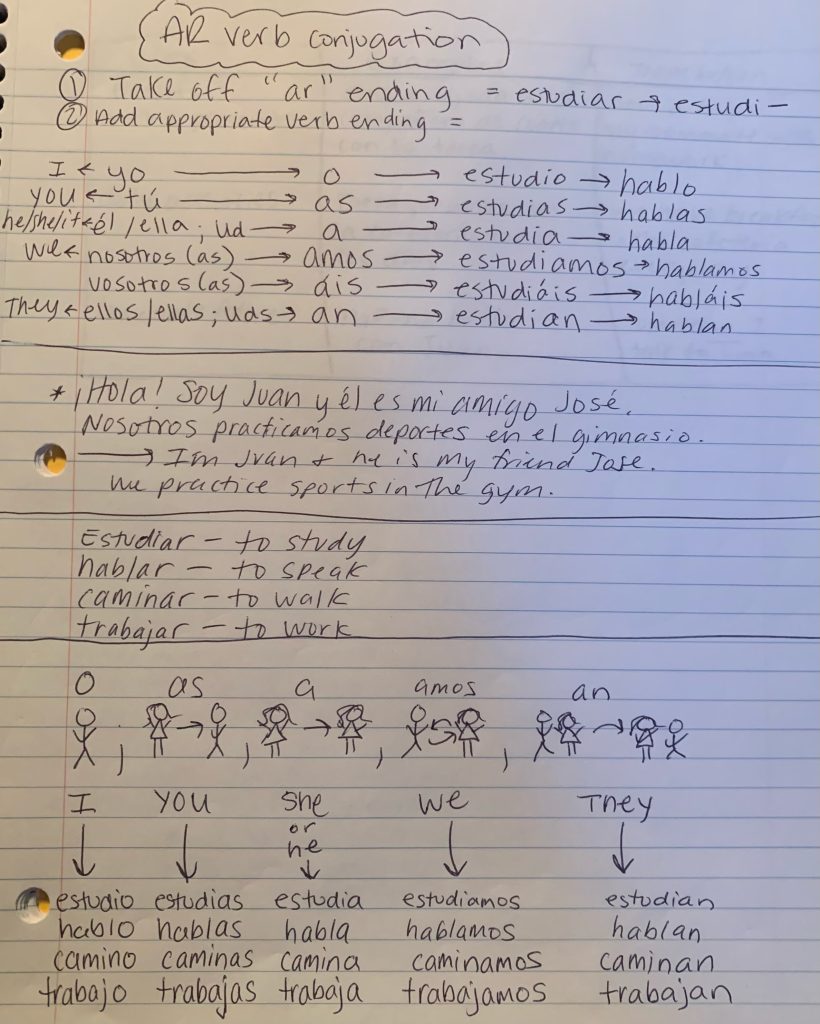 AR verb conjugation
① Take off "ar" ending = estudiar → estudi—
② Add appropriate verb ending =
I ← yo → o → estudio → hablo
you ← tú → as → estudias → hablas
he/she/it ← él/ella; ud → a → estudia → habla
we ← nosotros (as) → amos → estudiamos → hablamos
vosotros (as) → áis → estudiáis → habláis
They ← ellos/ellas; uds → an → estudian → hablan
* ¡Hola! Soy Juan y él es mi amigo José.
Nosotros practicamos deportes en el gimnasio.
→ Im Juan + he is my friend Jose.
we practice sports in the gym.
Estudiar — to study
hablar — to speak
caminar — to walk
trabajar — to work
o as a amos an
, , , ,
I you she we They
or
he
estudio estudias estudia estudiamos estudian
hablo hablas habla hablamos hablan
camino caminas camina caminamos caminan
trabajo trabajas trabaja trabajamos trabajan